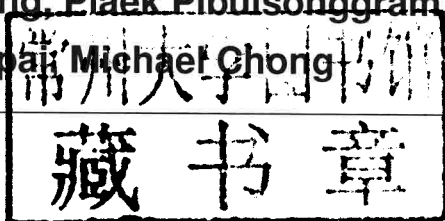 ng, Plaek Pibulsonggram
pai, Michael Chong
常州大学图书馆
藏书章